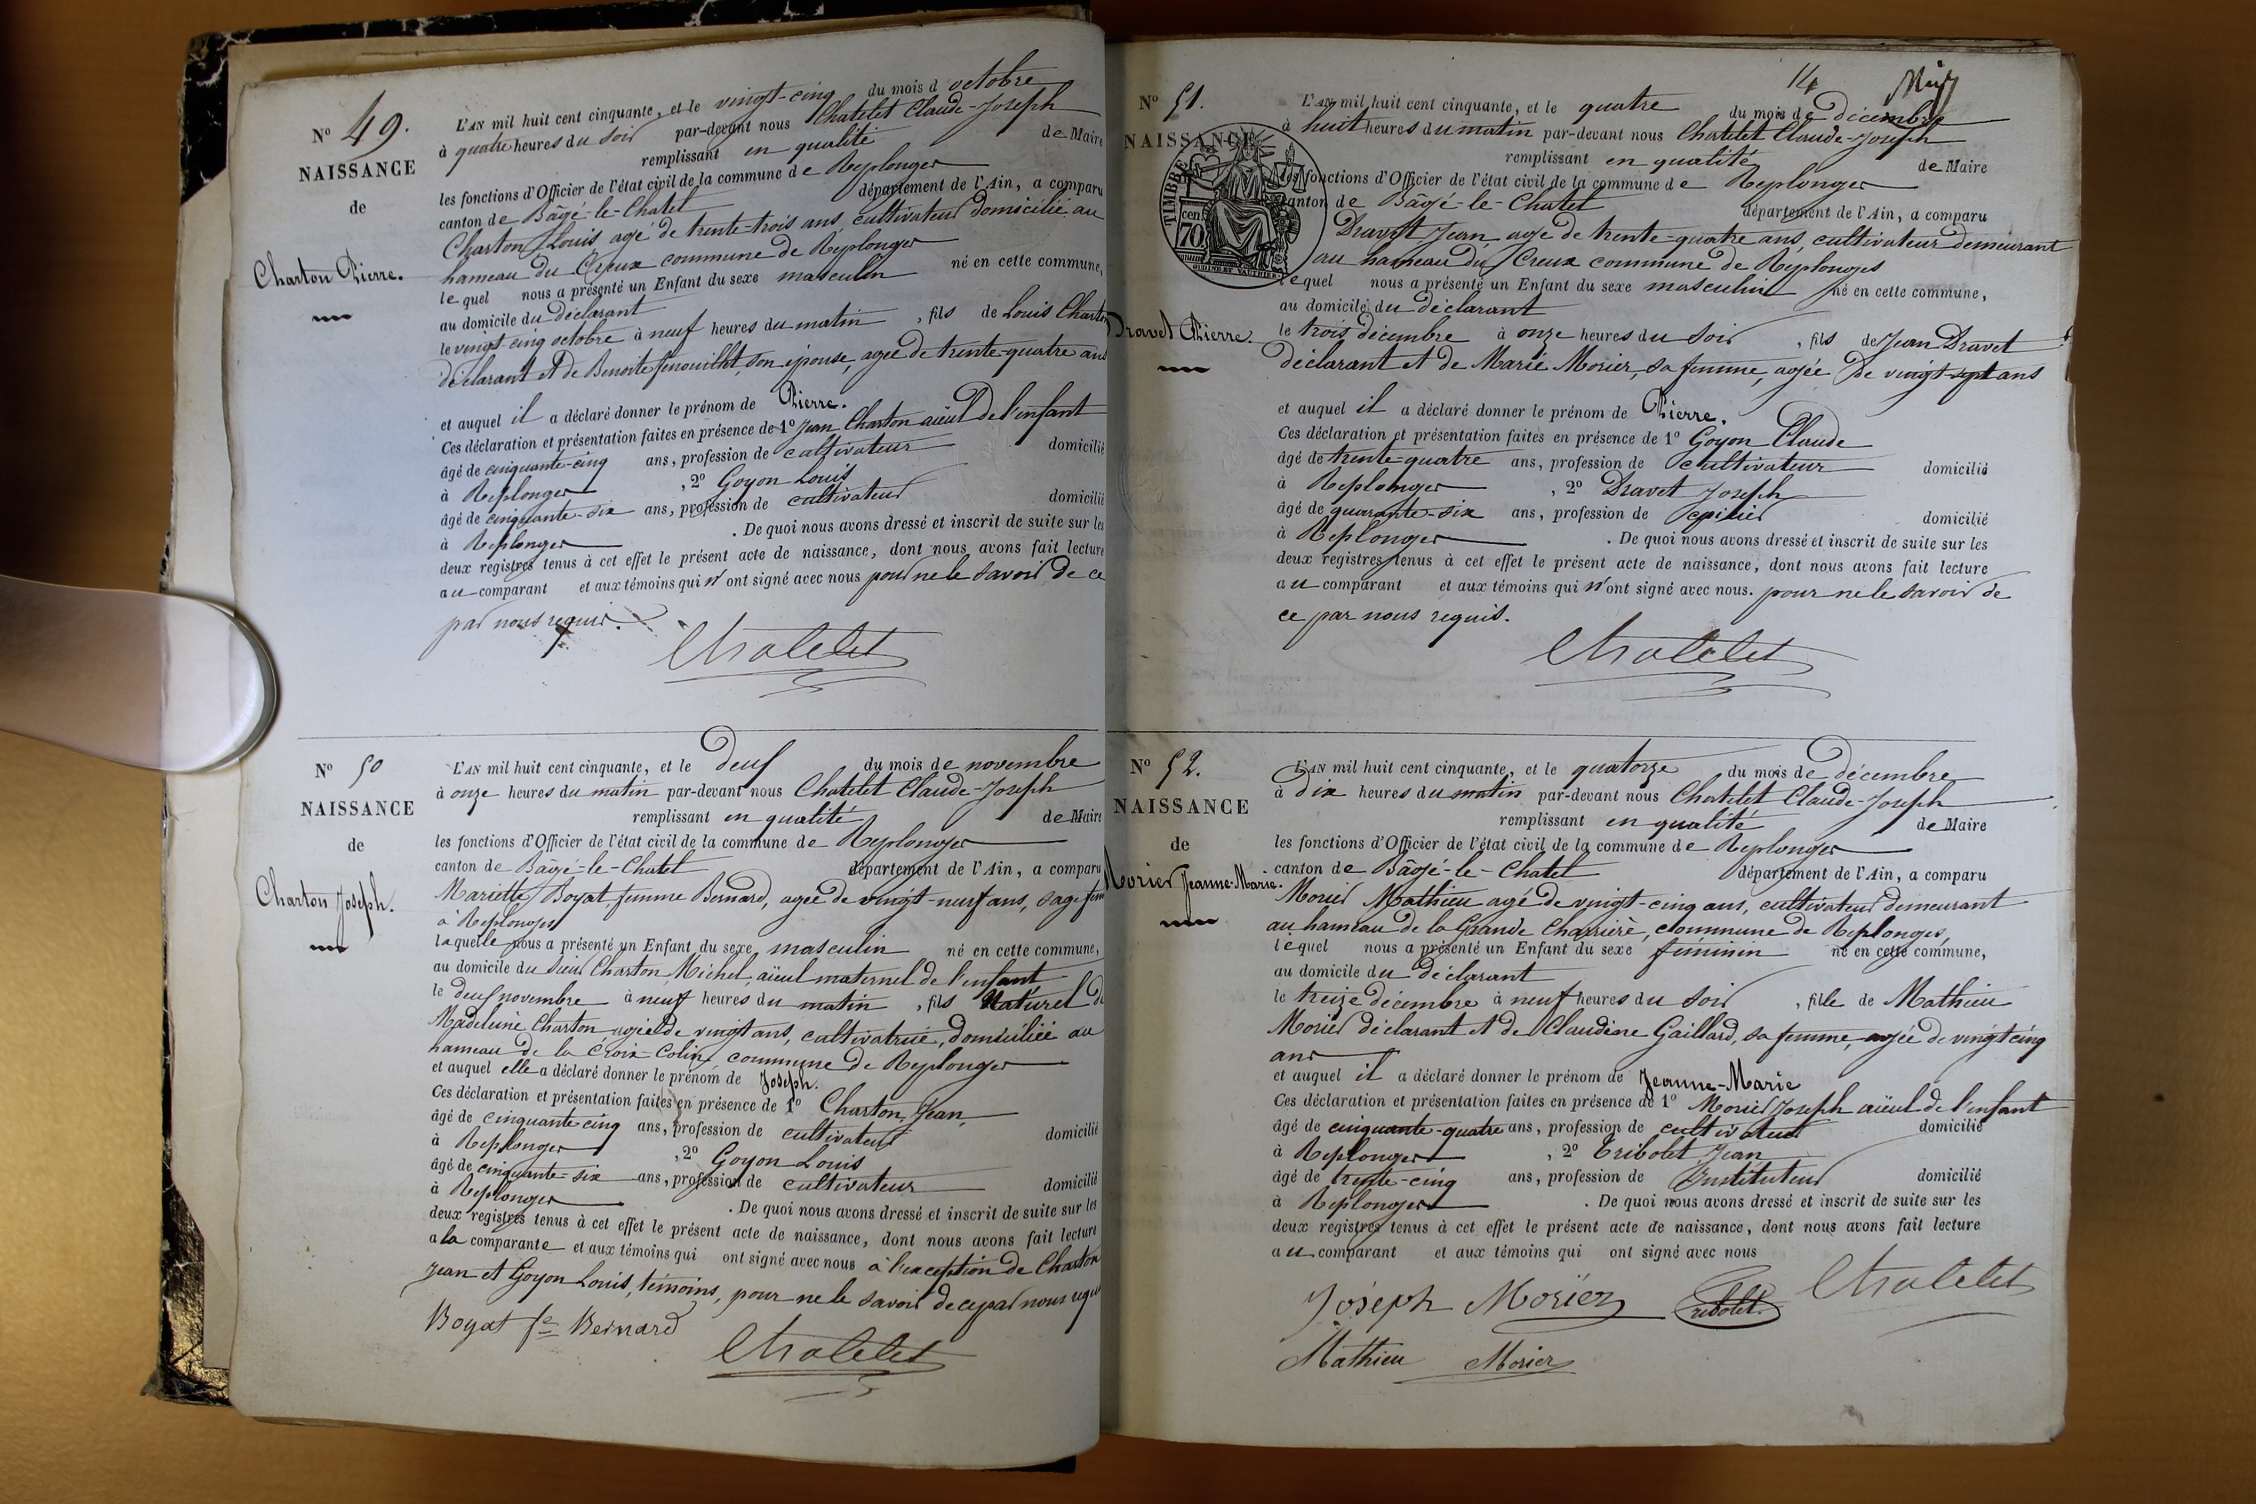 N° 49.
NAISSANCE
de
Charton Pierre.
L'AN mil huit cent cinquante, et le vingt-cinq du mois d octobre
à quatre heures du soir par-devant nous Chatelet Claude-Joseph
remplissant en qualité de Maire
les fonctions d'Officier de l'état civil de la commune de Replonges
canton de Bâgé-le-Chatel département de l'Ain, a comparu
Charton Louis, agé de trente-trois ans, cultivateur domicilié au
hameau du Creux commune de Replonges
lequel nous a présenté un Enfant du sexe masculin né en cette commune,
au domicile du déclarant
le vingt-cinq octobre à neuf heures du matin, fils de Louis Charton
déclarant et de Benoite fenouillet, son épouse, agée de trente-quatre ans
et auquel il a déclaré donner le prénom de Pierre.
Ces déclaration et présentation faites en présence de 1° Jean Charton aïeul de l'enfant
âgé de cinquante-cinq ans, profession de cultivateur domicilié
à Replonges, 2° Goyon Louis
âgé de cinquante-six ans, profession de cultivateur domicilié
à Replonges. De quoi nous avons dressé et inscrit de suite sur les
deux registres tenus à cet effet le présent acte de naissance, dont nous avons fait lecture
au comparant et aux témoins qui n'ont signé avec nous pour ne le savoir de ce
par nous requis.
Chatelet
N° 50
NAISSANCE
de
Charton Joseph.
L'AN mil huit cent cinquante, et le deux du mois de novembre
à onze heures du matin par-devant nous Chatelet Claude-Joseph
remplissant en qualité de Maire
les fonctions d'Officier de l'état civil de la commune de Replonges
canton de Bâgé-le-Chatel département de l'Ain, a comparu
Mariette Boyat femme Bernard, agée de vingt-neuf ans, sage fem
à Replonges
laquelle nous a présenté un Enfant du sexe masculin né en cette commune,
au domicile du sieur Charton Michel, aïeul maternel de l'enfant
le deux novembre à neuf heures du matin, fils Naturel de
Madeleine Charton agée de vingt ans, cultivatrice, domiciliée au
hameau de la Croix-Colin, commune de Replonges
et auquel elle a déclaré donner le prénom de Joseph.
Ces déclaration et présentation faites en présence de 1° Charton Jean,
âgé de cinquante cinq ans, profession de cultivateur domicilié
à Replonges, 2° Goyon Louis
âgé de cinquante-six ans, profession de cultivateur domicilié
à Replonges. De quoi nous avons dressé et inscrit de suite sur les
deux registres tenus à cet effet le présent acte de naissance, dont nous avons fait lecture
a la comparante et aux témoins qui ont signé avec nous à l'exception de Charton
Jean et Goyon Louis, témoins, pour ne le savoir de ce par nous requis
Boyat fe Bernard
Chatelet
14
N° 51.
NAISSANCE
TIMBRE
70 cen
OUDINÉ ET VAUTHIER
Dravet Pierre.
L'AN mil huit cent cinquante, et le quatre du mois de décembre
à huit heures du matin par-devant nous Chatelet Claude-Joseph
remplissant en qualité de Maire
les fonctions d'Officier de l'état civil de la commune de Replonges
canton de Bâgé-le-Chatel département de l'Ain, a comparu
Dravet Jean, agé de trente-quatre ans, cultivateur demeurant
au hameau du Creux commune de Replonges
lequel nous a présenté un Enfant du sexe masculin né en cette commune,
au domicile du déclarant
le trois décembre à onze heures du soir, fils de Jean Dravet
déclarant et de Marie Morier, sa femme, agée de vingt-sept ans
et auquel il a déclaré donner le prénom de Pierre.
Ces déclaration et présentation faites en présence de 1° Goyon Claude
âgé de trente-quatre ans, profession de cultivateur domicilié
à Replonges, 2° Dravet Joseph
âgé de quarante-six ans, profession de épicier domicilié
à Replonges. De quoi nous avons dressé et inscrit de suite sur les
deux registres tenus à cet effet le présent acte de naissance, dont nous avons fait lecture
au comparant et aux témoins qui n'ont signé avec nous. pour ne le savoir de
ce par nous requis.
Chatelet
N° 52.
NAISSANCE
de
Morier Jeanne-Marie.
L'AN mil huit cent cinquante, et le quatorze du mois de décembre
à dix heures du matin par-devant nous Chatelet Claude-Joseph
remplissant en qualité de Maire
les fonctions d'Officier de l'état civil de la commune de Replonges
canton de Bâgé-le-Chatel département de l'Ain, a comparu
Morier Mathieu agé de vingt-cinq ans, cultivateur demeurant
au hameau de la Grande Charrière, commune de Replonges,
lequel nous a présenté un Enfant du sexe féminin né en cette commune,
au domicile du déclarant
le treize décembre à neuf heures du soir, fille de Mathieu
Morier déclarant et de Claudine Gaillard, sa femme, agée de vingt cinq
ans
et auquel il a déclaré donner le prénom de Jeanne-Marie
Ces déclaration et présentation faites en présence de 1° Morier Joseph aïeul de l'enfant
âgé de cinquante-quatre ans, profession de cultivateur domicilié
à Replonges, 2° Tribolet Jean
âgé de trente-cinq ans, profession de Instituteur domicilié
à Replonges. De quoi nous avons dressé et inscrit de suite sur les
deux registres tenus à cet effet le présent acte de naissance, dont nous avons fait lecture
au comparant et aux témoins qui ont signé avec nous
Joseph Moriez Tribolet Chatelet
Mathieu Morier